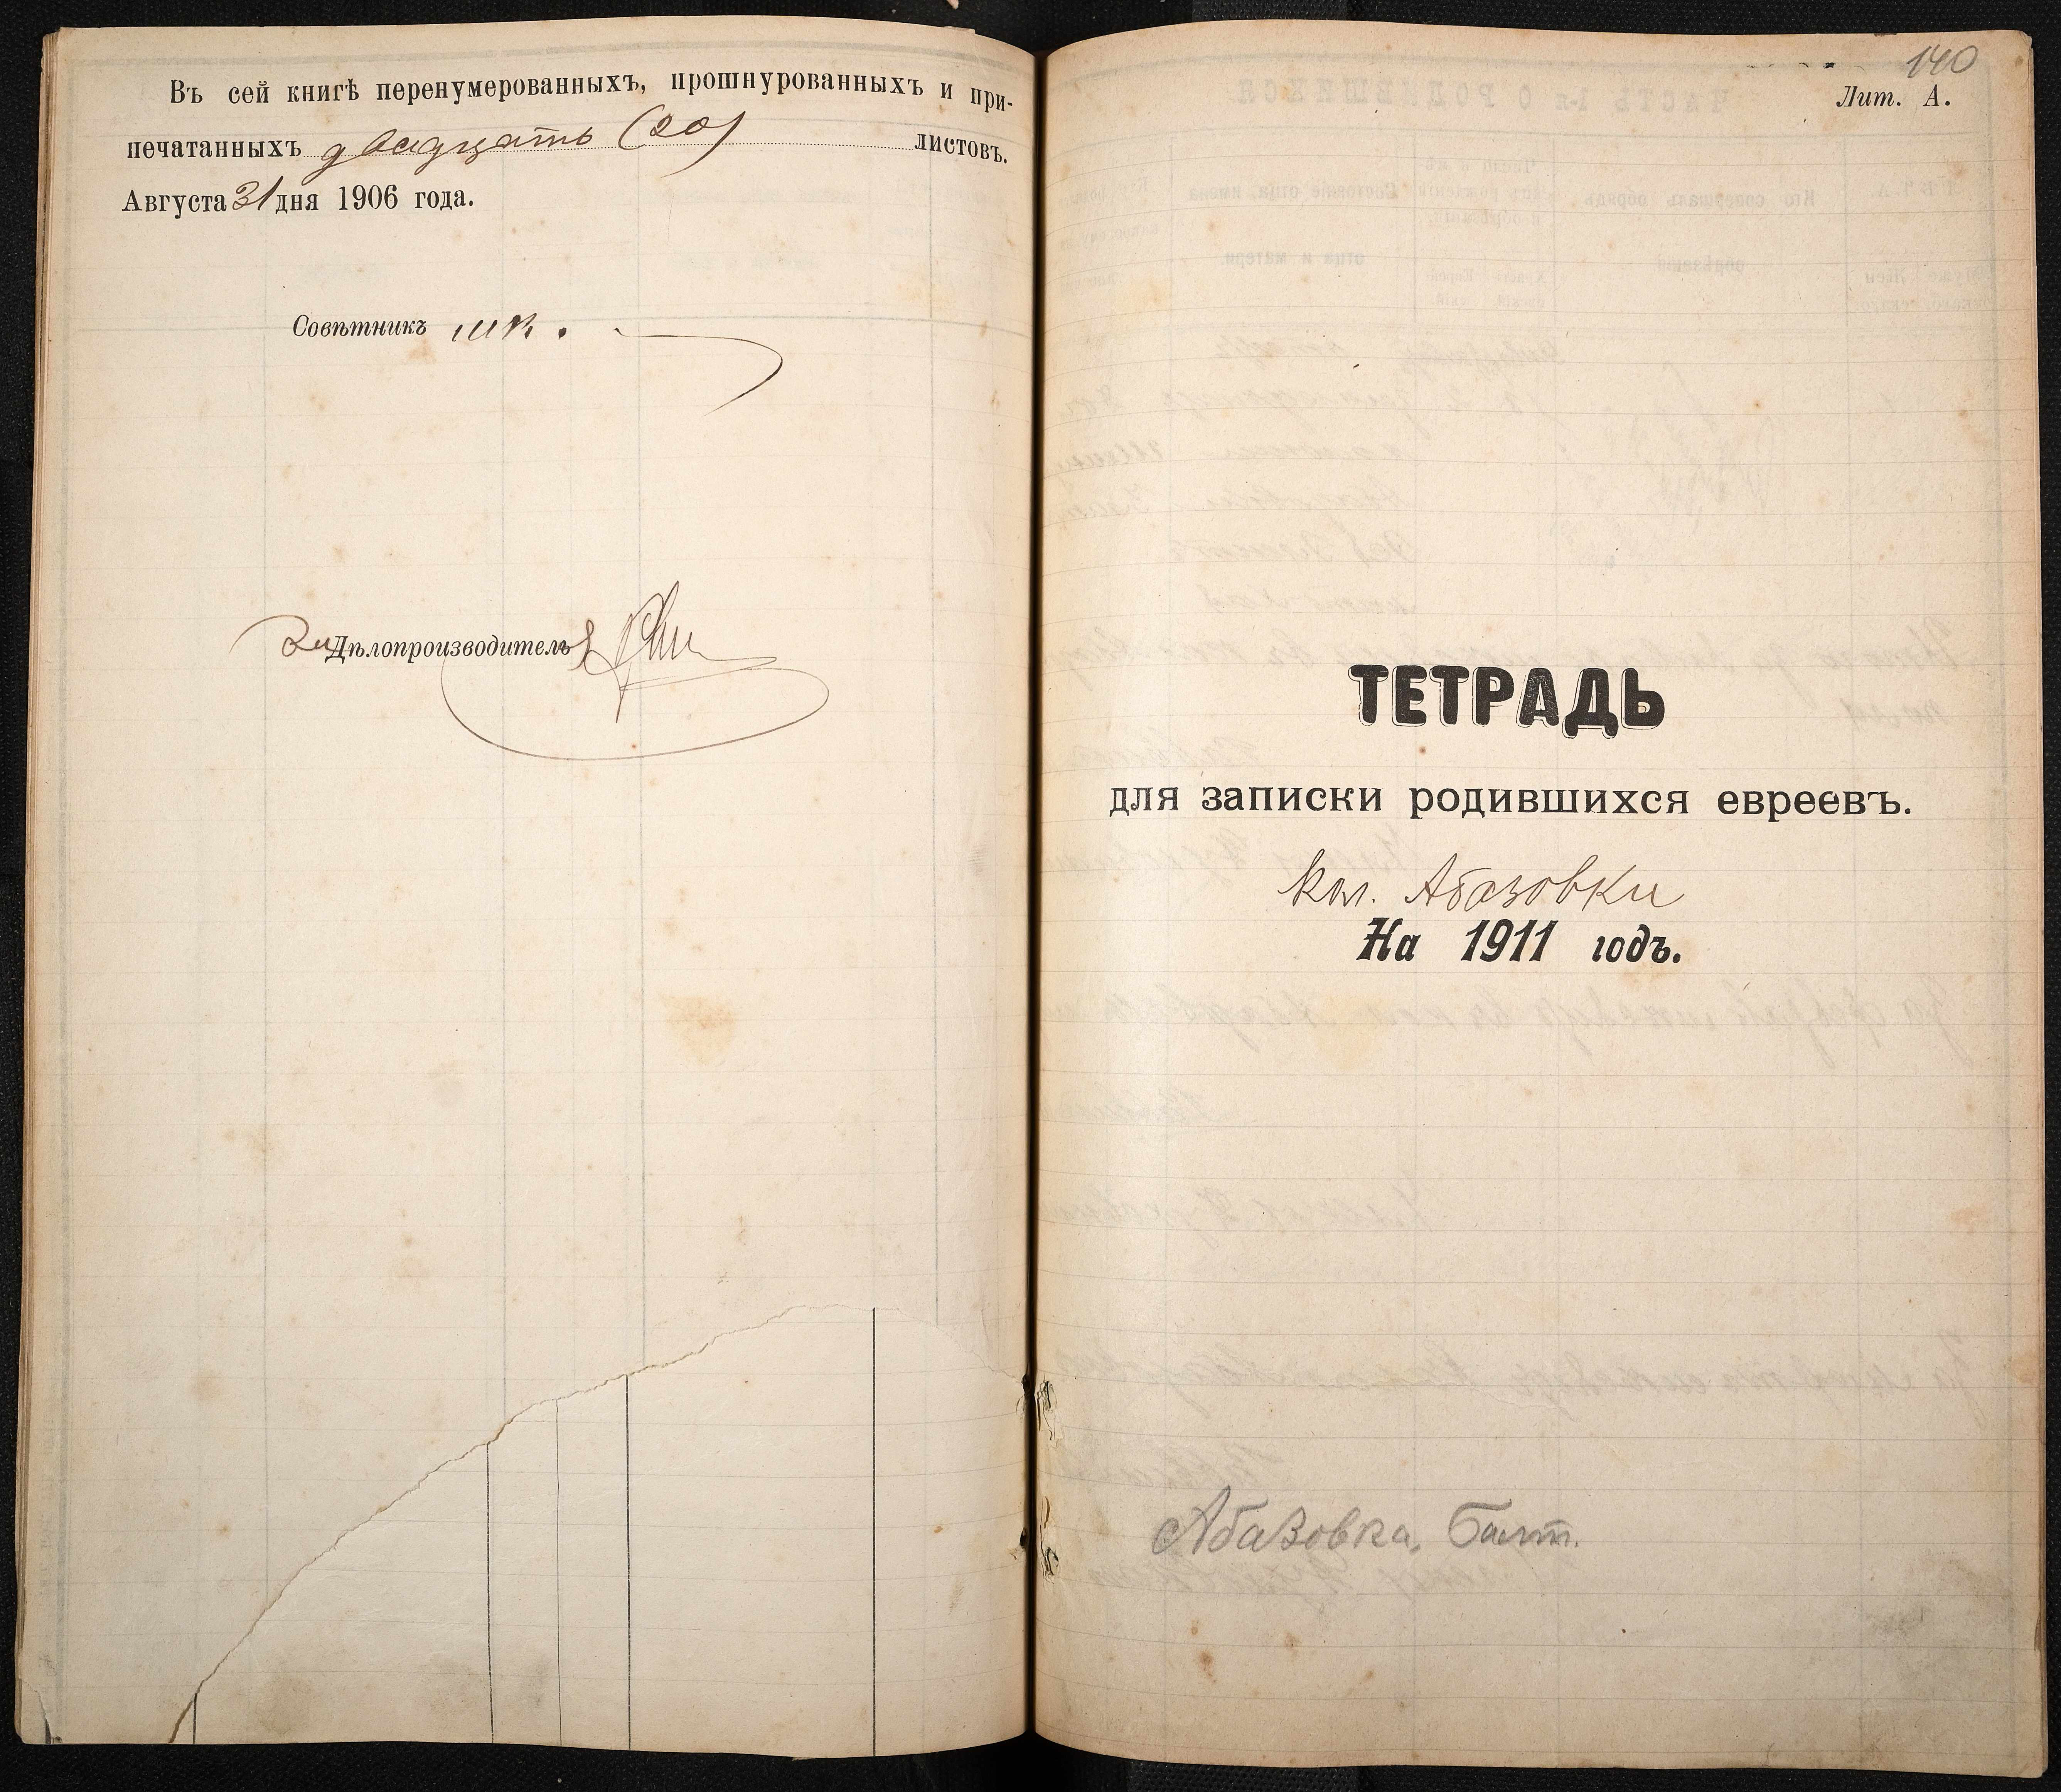 Въ сей книгѣ перенумерованныхъ, прошнурованныхъ и при-
печатанныхъ двадцать (20) листовъ.
Августа 31 дня 1906 года.
Совѣтникъ
Дѣлопроизводитель
140
Лит. А.
ТЕТРАДЬ
для записки родившихся евреевъ.
кол. Абазовки
На 1911 годъ.
Абазовка, Балт.